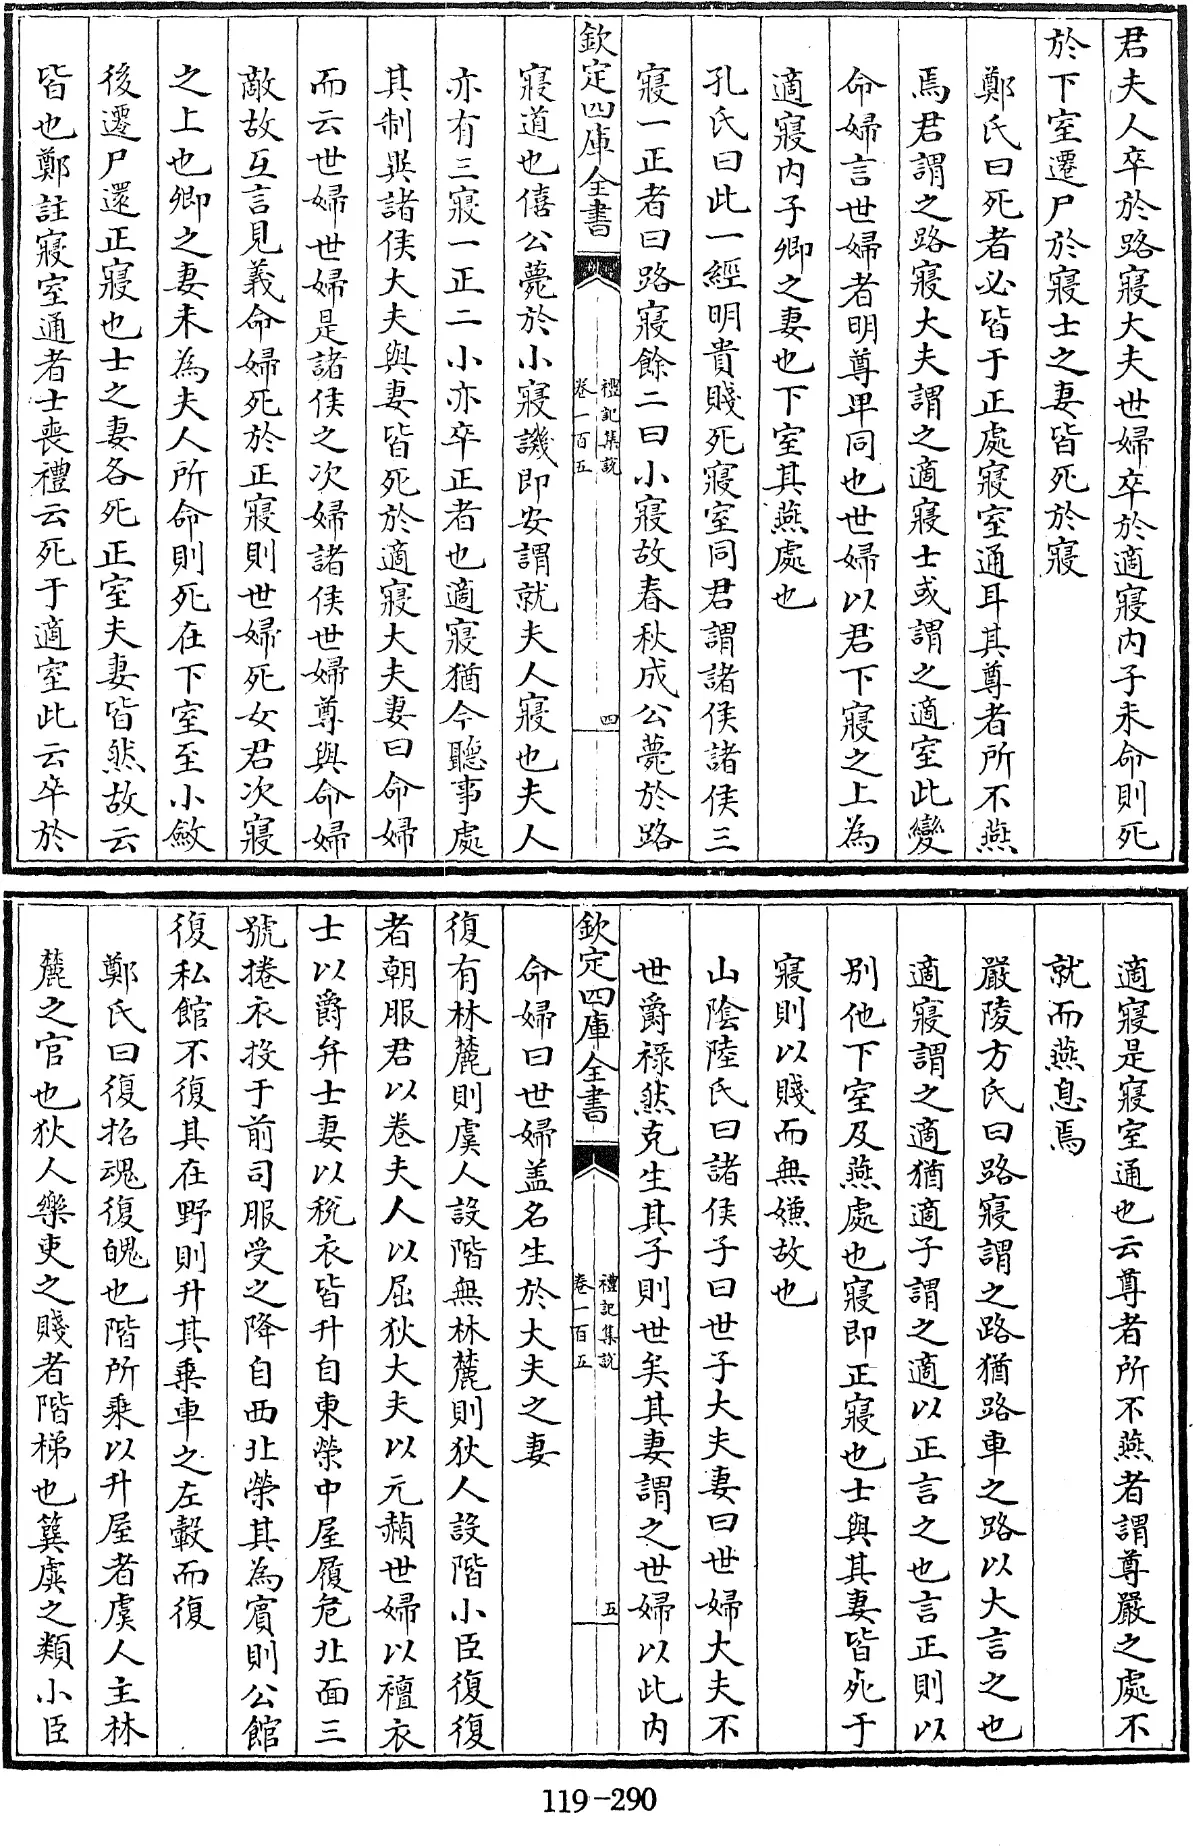 君夫人卒於路寢大夫世婦卒於適寢内子未命則死
於下室遷尸於寢士之妻皆死於寢
鄭氏曰死者必皆于正處寢室通耳其尊者所不燕
焉君謂之路寢大夫謂之適寢士或謂之適室此變
命婦言世婦者明尊卑同也世婦以君下寢之上為
適寢内子卿之妻也下室其燕處也
孔氏曰此一經明貴賤死寢室同君謂諸侯諸侯三
寢一正者曰路寢餘二曰小寢故春秋成公薨於路
欽定四庫全書
禮記集說
卷一百五
四
寢道也僖公薨於小寢譏即安謂就夫人寢也夫人
亦有三寢一正二小亦卒正者也適寢猶今聽事處
其制與諸侯大夫與妻皆死於適寢大夫妻曰命婦
而云世婦世婦是諸侯之次婦諸侯世婦尊與命婦
敵故互言見義命婦死於正寢則世婦死女君次寢
之上也卿之妻未為夫人所命則死在下室至小斂
後遷尸還正寢也士之妻各死正室夫妻皆然故云
皆也鄭註寢室通者士喪禮云死于適室此云卒於
適寢是寢室通也云尊者所不燕者謂尊嚴之處不
就而燕息焉
嚴陵方氏曰路寢謂之路猶路車之路以大言之也
適寢謂之適猶適子謂之適以正言之也言正則以
別他下室及燕處也寢即正寢也士與其妻皆死于
寢則以賤而無嫌故也
山陰陸氏曰諸侯子曰世子大夫妻曰世婦大夫不
世爵祿然克生其子則世矣其妻謂之世婦以此内
欽定四庫全書
禮記集說
卷一百五
五
命婦曰世婦盖名生於大夫之妻
復有林麓則虞人設階無林麓則狄人設階小臣復復
者朝服君以卷夫人以屈狄大夫以元赬世婦以襢衣
士以爵弁士妻以稅衣皆升自東榮中屋履危北面三
號捲衣投于前司服受之降自西北榮其為賓則公館
復私館不復其在野則升其乗車之左轂而復
鄭氏曰復招魂復魄也階所乗以升屋者虞人主林
麓之官也狄人樂吏之賤者階梯也簨虡之類小臣
119-290